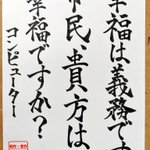 幸福は義務です
市民、貴方は
幸福ですか？
コンピューター